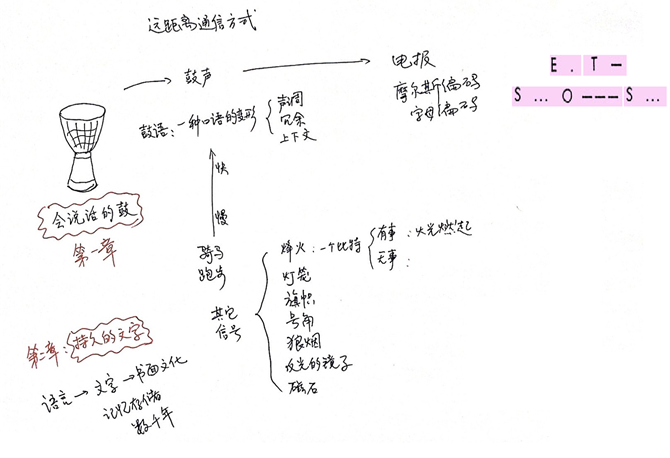 远距离通信方式
鼓声
电报
摩尔斯编码
字母编码
E . T –
S ... O – – – S ...
鼓语：一种口语的变形
声调
冗余
上下文
会说话的鼓
第一章
快
慢
骑马
跑步
其它
信号
烽火：一个比特
有事：火光燃起
无事：
灯笼
旗帜
号角
狼烟
反光的镜子
磁石
第二章：持久的文字
语言→文字→书面文化
记忆存储
数千年